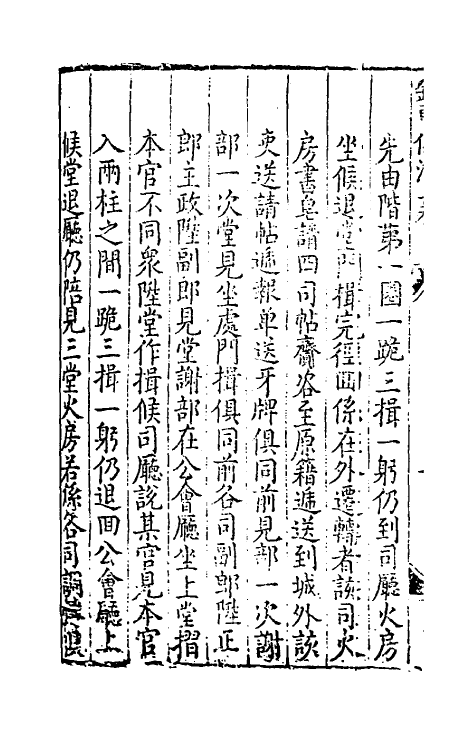 先由階第一圈一跪三揖一躬仍到司廳火房
坐候退堂門揖完徑回係在外遷轉者該司火
房書皂請四司帖齎咨至原籍遞送到城外該
吏送請帖遞報单送牙牌俱同前見部一次謝
部一次堂見坐處門揖俱同前各司副郎陞正
郎主政陞副郎見堂謝部在公會廳坐上堂摺
本官不同衆陞堂作揖候司廳說其官見本官
入兩柱之間一跪三揖一躬仍退回公會廳上
候堂退廳仍陪見三堂火房若係各司